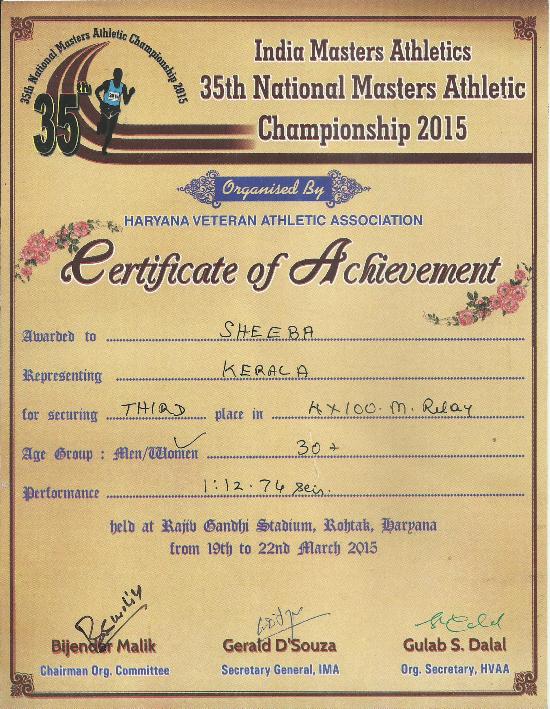 35th National Masters Athletic Championship 2015
35th
India Masters Athletics
35th National Masters Athletic
Championship 2015
Organised By
HARYANA VETERAN ATHLETIC ASSOCIATION
Certificate of Achievement
Awarded to SHEEBA
Representing KERALA
for securing THIRD place in 4X100.M. Relay
Age Group : Men/Women 30+
Performance 1:12.74 sec.
held at Rajiv Gandhi Stadium, Rohtak, Haryana
from 19th to 22nd March 2015
Bijender Malik Gerald D'Souza Gulab S. Dalal
Chairman Org. Committee Secretary General, IMA Org. Secretary, HVAA